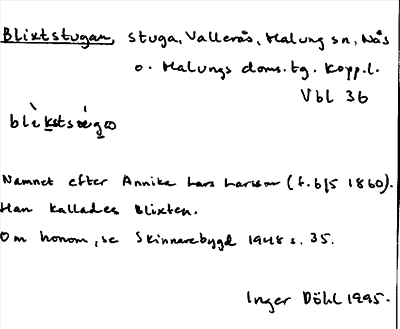 Blixtstugan, stuga, Vallerås, Malung sn, Nås
o. Malungs doms.tg. Kopp.l.
Vbl 36
Namnet efter Annika Lars Larsson (f. 6/5 1860).
Han kallades Blixten.
Om honom, se Skinnarebygd 1948 s. 35.
Inger Döhl 1995.